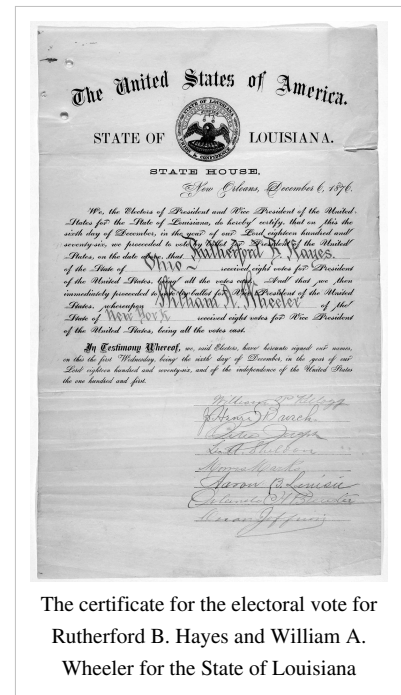 The United States of America.
STATE OF LOUISIANA.
STATE HOUSE,
New Orleans, December 6, 1876.
We, the Electors of President and Vice President of the United
States for the State of Louisiana, do hereby certify, that on this the
sixth day of December, in the year of our Lord eighteen hundred and
seventy-six, we proceeded to vote by ballot for President of the United
States, on the date above, that Rutherford B. Hayes.
of the State of Ohio received eight votes for President
of the United States, being all the votes cast. And that we then
immediately proceeded to vote by ballot for Vice President of the United
States, whereupon William A. Wheeler of the
State of New York received eight votes for Vice President
of the United States, being all the votes cast.
In Testimony Whereof, we, said Electors, have hereunto signed our names,
on this the first Wednesday, being the sixth day of December, in the year of our
Lord eighteen hundred and seventy-six, and of the independence of the United States
the one hundred and first.
William P. Kellogg
J. Henri Burch
Peter Joseph
L. A. Sheldon
Morris Marks
Aaron B. Levissee
Orlando H. Brewster
Oscar Joffrion
The certificate for the electoral vote for
Rutherford B. Hayes and William A.
Wheeler for the State of Louisiana